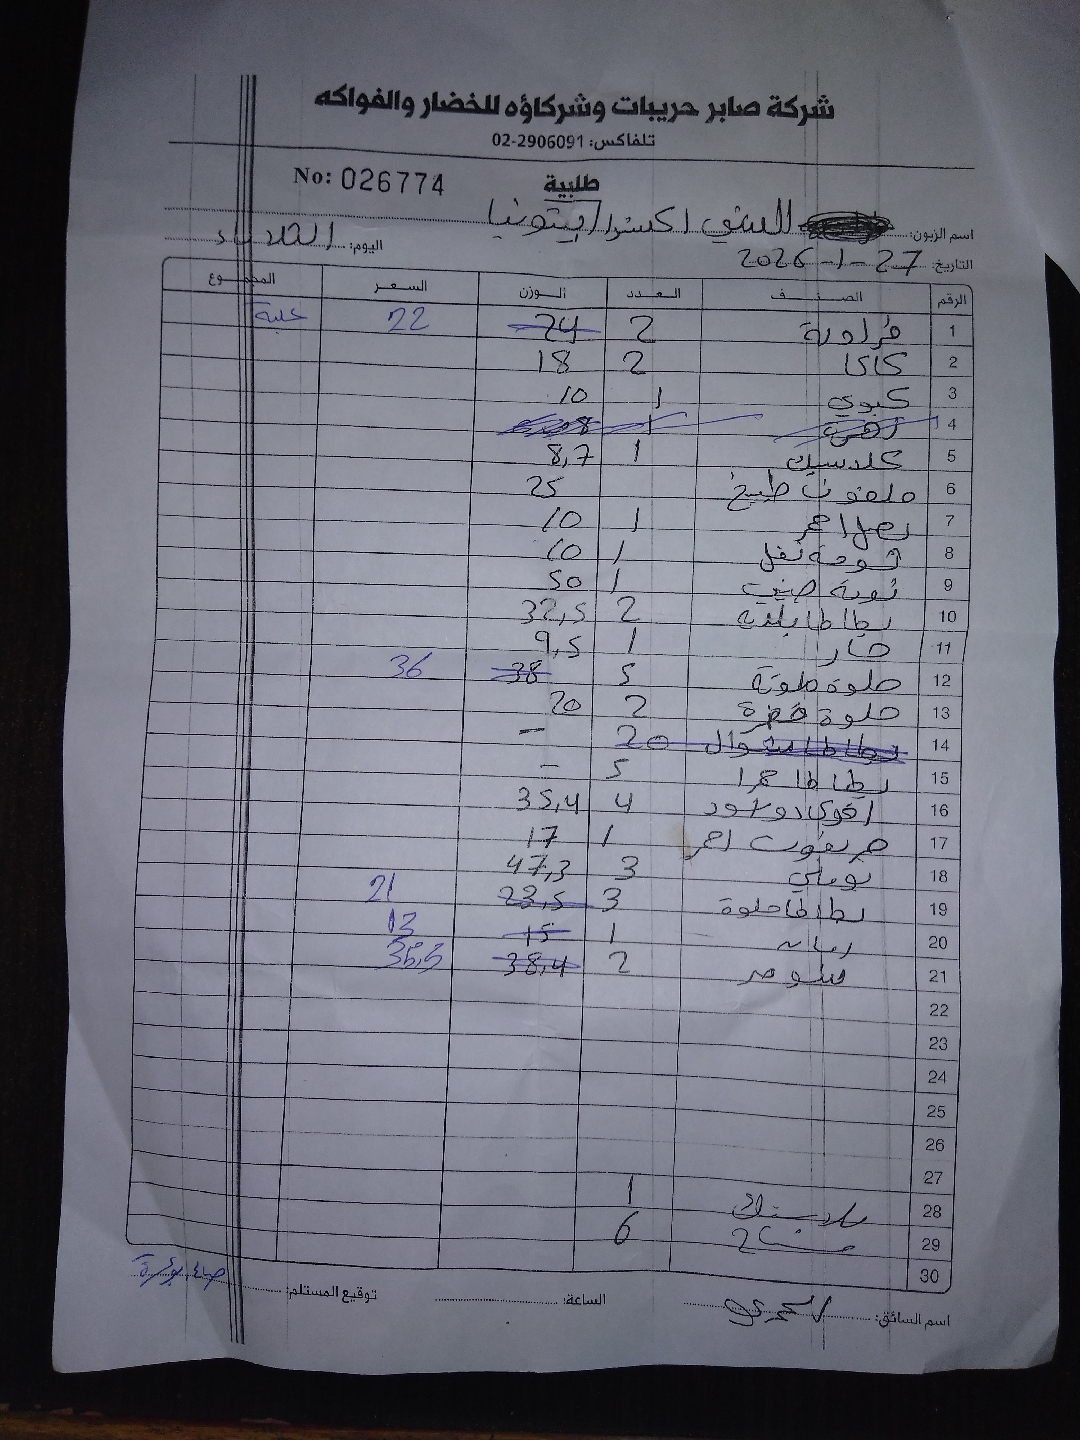 شركة صابر حريبات وشركاؤه للخضار والفواكه
تلفاكس: 02-2906091
No: 026774
طلبية
اسم الزبون: الشني اكسترا/بيتونيا
اليوم: الثلاثاء
التاريخ: 27-1-2026
الرقم الصنف العدد الوزن السعر المجموع
1 فراولة 2 24 22 علبة
2 كاكا 2 18
3 كيوي 1 10
4 1 8
5 كلاسيك 1 8,7
6 ملفوف طبيخ 25
7 بصل احمر 1 10
8 ثومة نفل 1 10
9 ثومة صيني 1 50
10 بطاطا بلدية 2 32,5
11 حار 1 9,5
12 حلوة ملونة 5 38 36
13 حلوة خضرة 2 20
14 بطاطا شوال 20 -
15 بطاطا حمرا 5 -
16 افوكادو 4 35,4
17 جريفوت احمر 1 17
18 بوملي 3 47,3
19 بطاطا حلوة 3 23,5 21
20 رمانه 1 15 13
21 شومر 2 38,4 36,5
22
23
24
25
26
27
28 بلاستيك 1
29 مشتاح 6
30
اسم السائق:
الساعة:
توقيع المستلم: